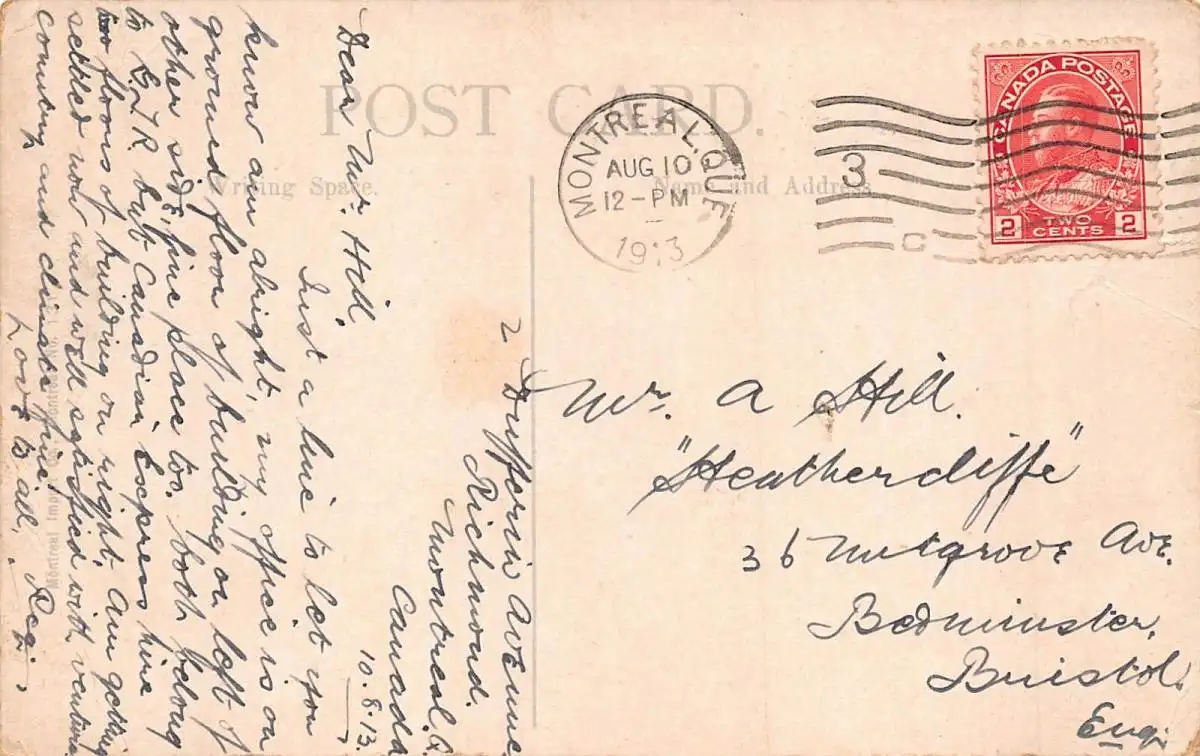 POST CARD.
Writing Space.
Name and Address
MONTREAL, QUE
AUG 10
12-PM
1913
3
C
CANADA POSTAGE
2 TWO CENTS 2
2 Dufferin Avenue,
Richmond.
Montreal. Q.
Canada
10.8.13.
Dear Mr. Hill,
Just a line to let you
know am alright, my office is on
ground floor of building on left of
other side fine place too. both belong
to G.T.R but Canadian Express hire
two floors of building on right. Am getting
settled now and well satisfied with
country and climate fine.
Love to all, Reg.
Mr. A Hill.
"Heathercliffe"
36 Nutgrove Ave.
Bedminster,
Bristol.
Eng.
Montreal